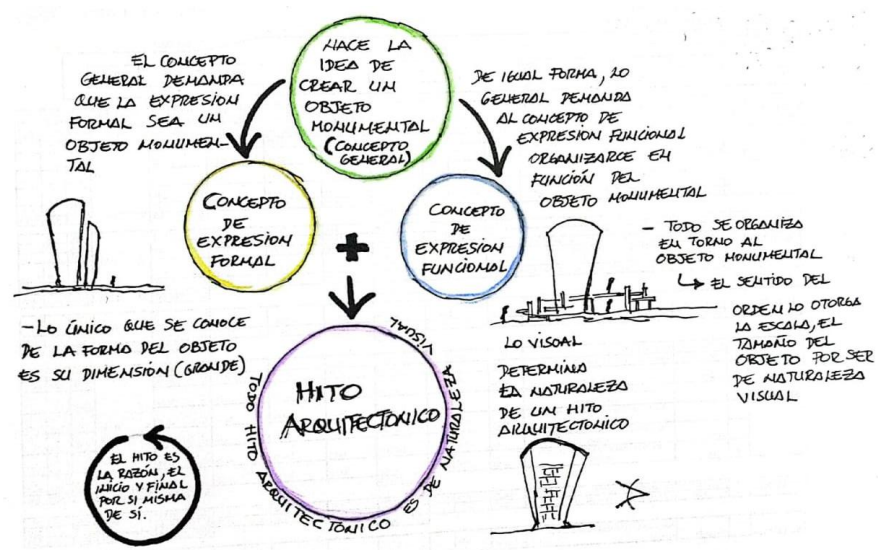 NACE LA
IDEA DE
CREAR UN
OBJETO
MONUMENTAL
(CONCEPTO
GENERAL)
EL CONCEPTO
GENERAL DEMANDA
QUE LA EXPRESION
FORMAL SEA UN
OBJETO MONUMEN-
TAL
DE IGUAL FORMA, LO
GENERAL DEMANDA
AL CONCEPTO DE
EXPRESION FUNCIONAL
ORGANIZARCE EN
FUNCIÓN DEL
OBJETO MONUMENTAL
CONCEPTO
DE
EXPRESION
FORMAL
+
CONCEPTO
DE
EXPRESION
FUNCIONAL
- TODO SE ORGANIZA
EN TORNO AL
OBJETO MONUMENTAL
↳ EL SENTIDO DEL
ORDEN LO OTORGA
LA ESCALA, EL
TAMAÑO DEL
OBJETO POR SER
DE NATURALEZA
VISUAL
- LO ÚNICO QUE SE CONOCE
DE LA FORMA DEL OBJETO
ES SU DIMENSIÓN (GRANDE)
HITO
ARQUITECTONICO
TODO HITO ARQUITECTONICO ES DE NATURALEZA VISUAL
LO VISUAL
DETERMINA
LA NATURALEZA
DE UN HITO
ARQUITECTONICO
EL HITO ES
LA RAZÓN, EL
INICIO Y FINAL
POR SI MISMA
DE SÍ.